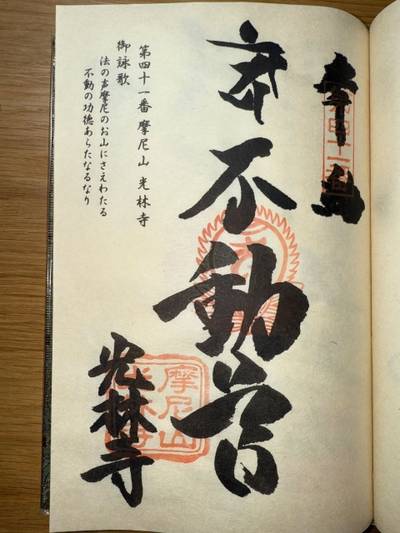 四十一番
不動尊
第四十一番 摩尼山 光林寺
御詠歌
法の声摩尼のお山にさえわたる
不動の功徳あらたなるなり
光林寺
摩尼山